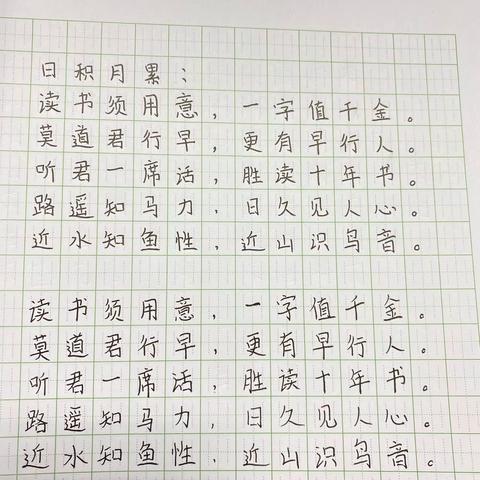 日积月累：
读书须用意，一字值千金。
莫道君行早，更有早行人。
听君一席话，胜读十年书。
路遥知马力，日久见人心。
近水知鱼性，近山识鸟音。
读书须用意，一字值千金。
莫道君行早，更有早行人。
听君一席话，胜读十年书。
路遥知马力，日久见人心。
近水知鱼性，近山识鸟音。